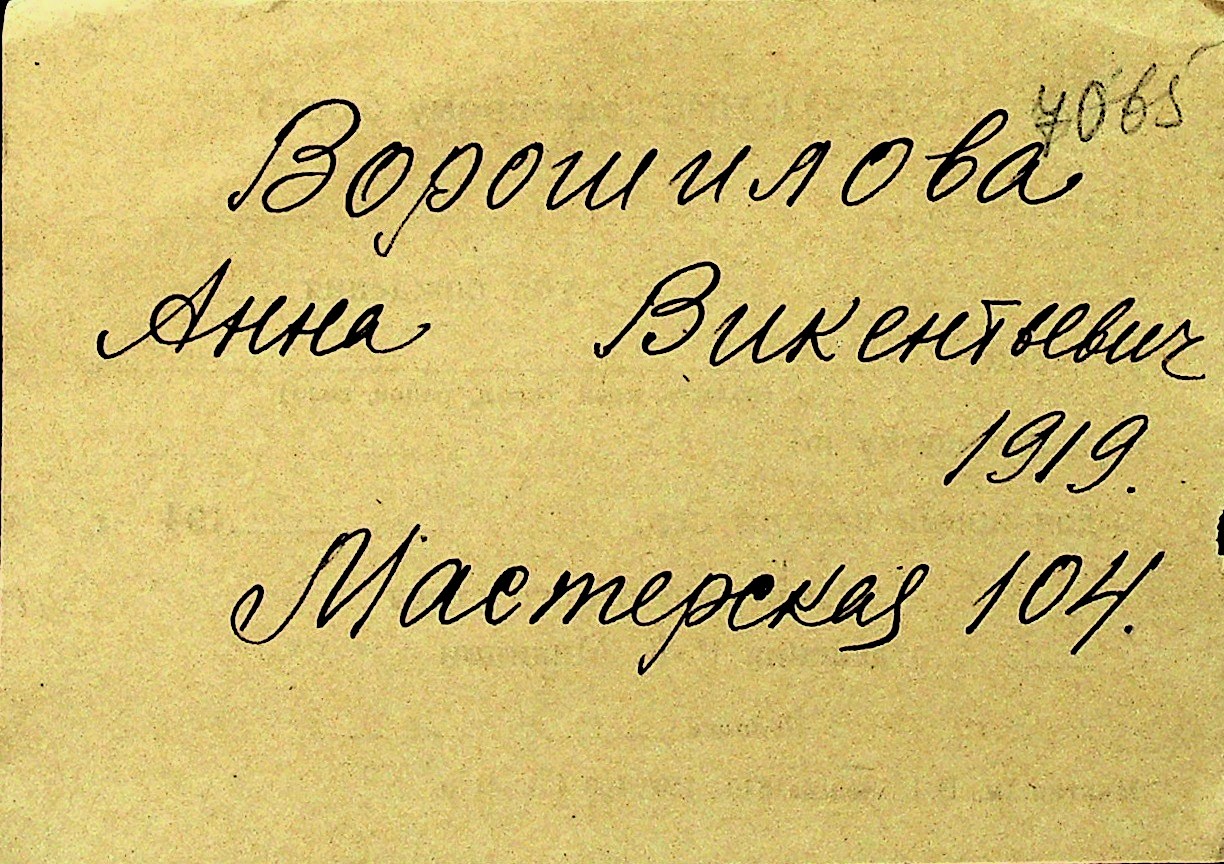 Ворошилова
Анна Викентьевич
1919.
Мастерская 104.